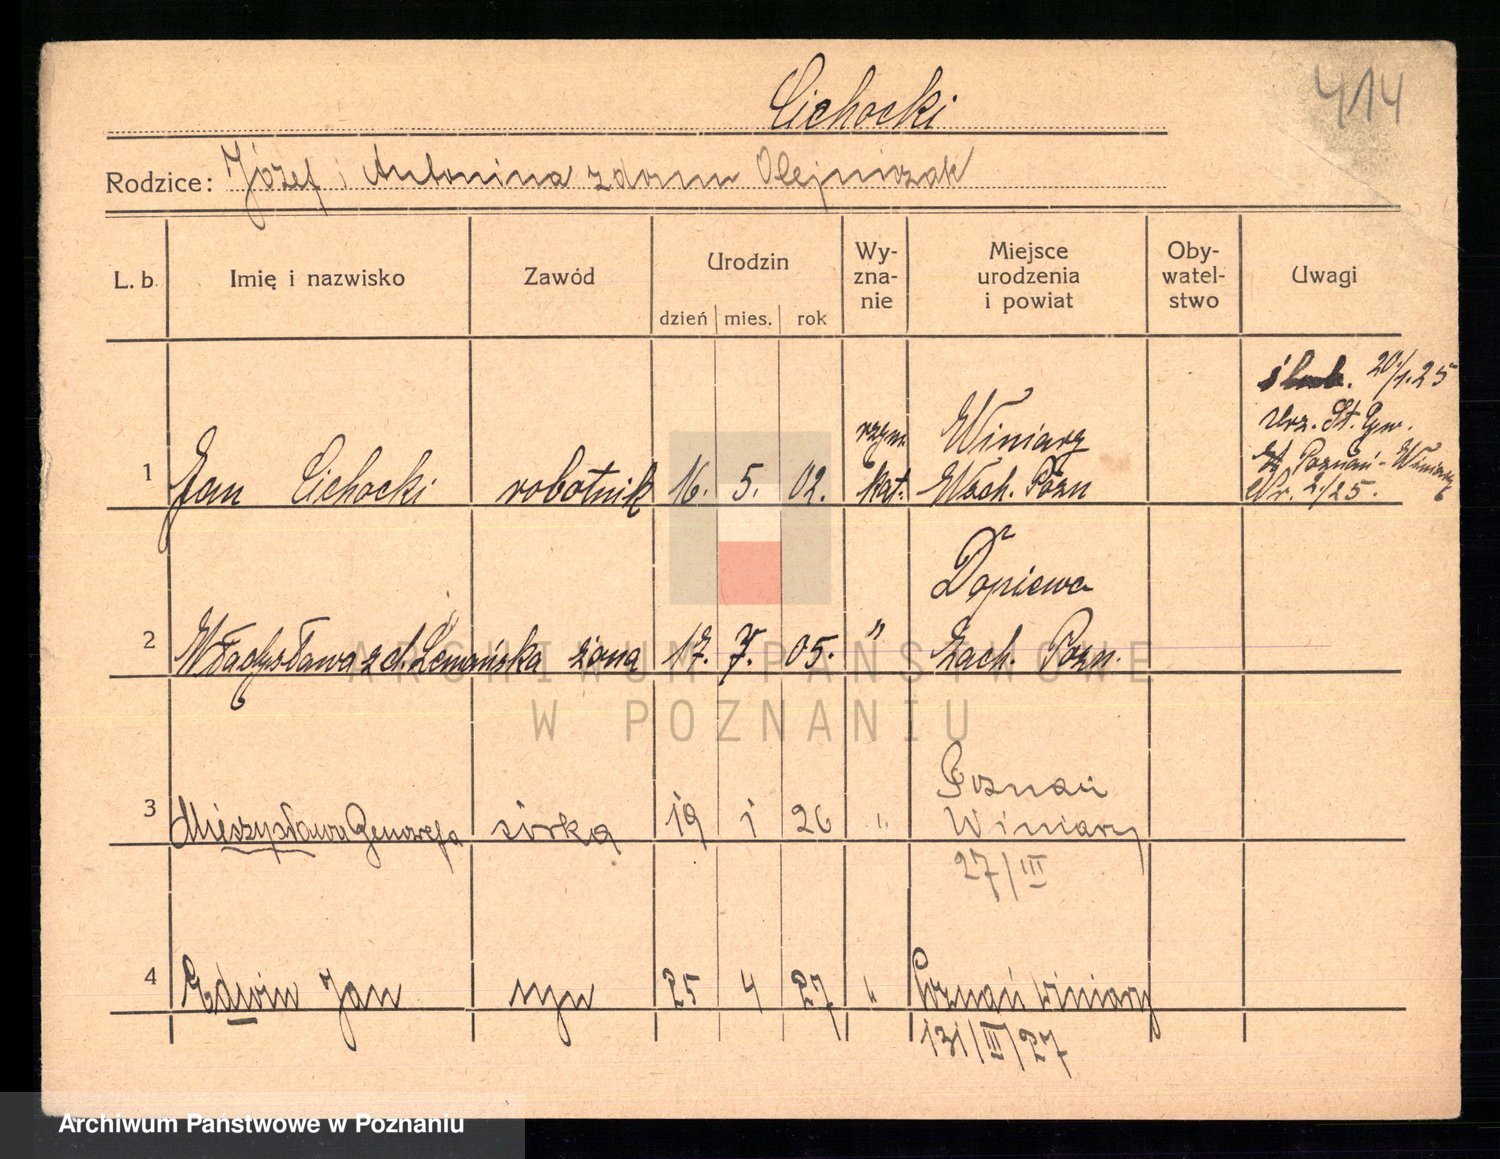 Cichocki
414
Rodzice: Józef i Antonina z domu Olejniczak
L. b. Imię i nazwisko Zawód Urodzin dzień mies. rok Wy-zna-nie Miejsce urodzenia i powiat Oby-watel-stwo Uwagi
ślub. 20/1.25
Urz. St. Cyw.
Poznań - Winiary
Nr. 2/25.
1 Jan Cichocki robotnik 16. 5. 02. rzym. kat. Winiary Wsch. Pozn
2 Władysława z d. Lemańska żona 17. 7. 05. " Dopiewa Zach. Pozn.
3 Mieczysława Genowefa córka 19 1 26 " Poznań Winiary
27/III
4 Edwin Jan syn 25 4 27 " Poznań Winiary
131/III/27
ARCHIWUM PAŃSTWOWE
W POZNANIU
Archiwum Państwowe w Poznaniu